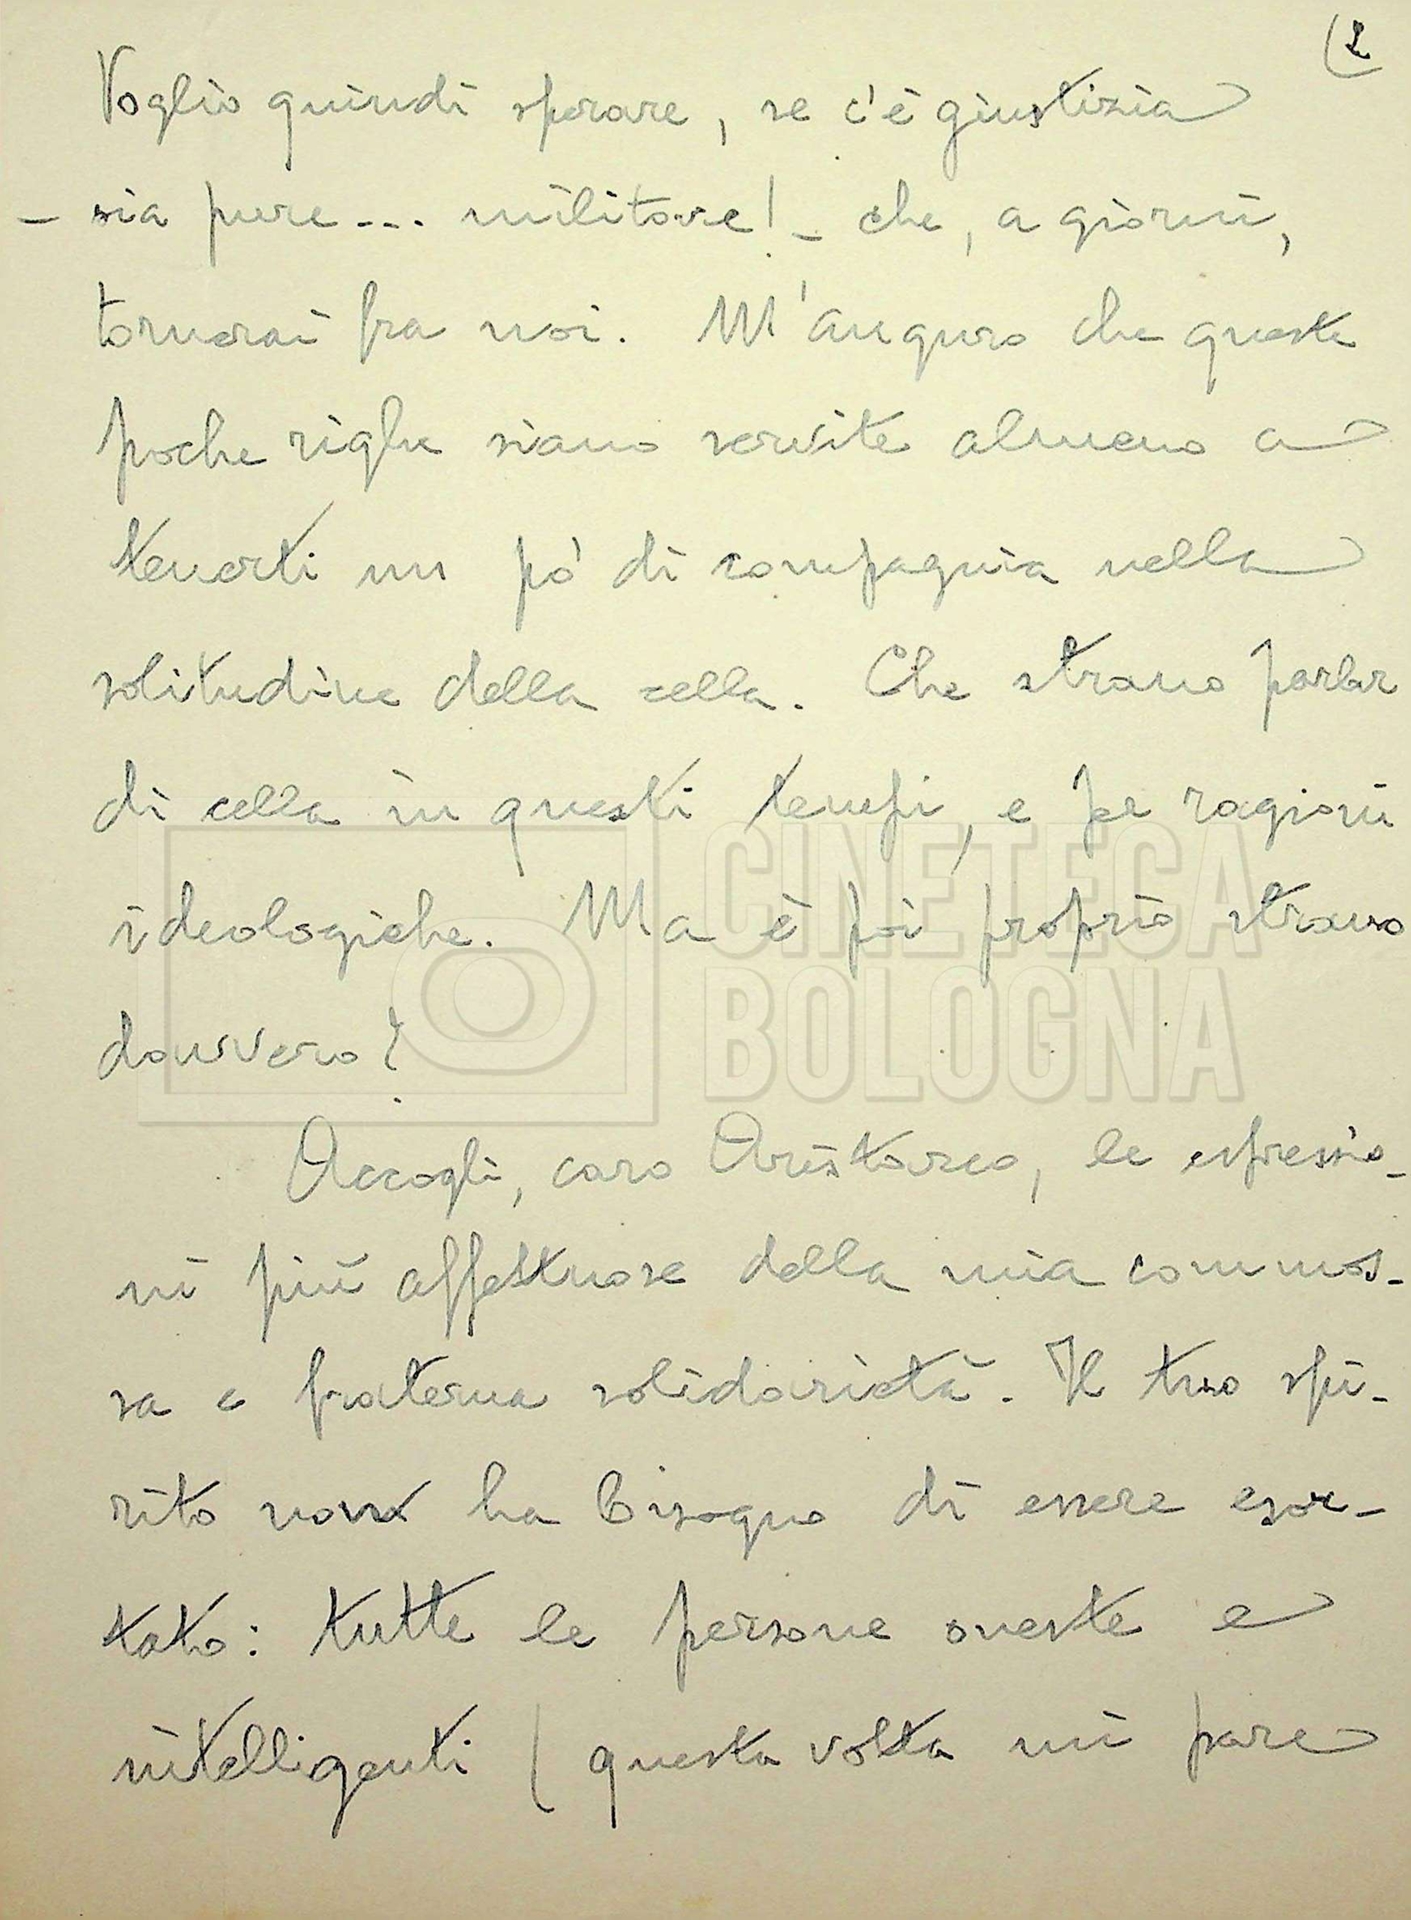 (2
Voglio quindi sperare, se c'è giustizia
- sia pure... militare! - che, a giorni,
tornerai fra noi. M'auguro che queste
poche righe siano servite almeno a
tenerti un pò di compagnia nella
solitudine della cella. Che strano parlar
di cella in questi tempi, e per ragioni
ideologiche. Ma è poi proprio strano
davvero?
CINETECA
BOLOGNA
Accogli, caro Aristarco, le espressio-
ni più affettuose della mia commos-
sa e fraterna solidarietà. Il tuo spi-
rito non ha bisogno di essere esor-
tato: tutte le persone oneste e
intelligenti (questa volta mi pare